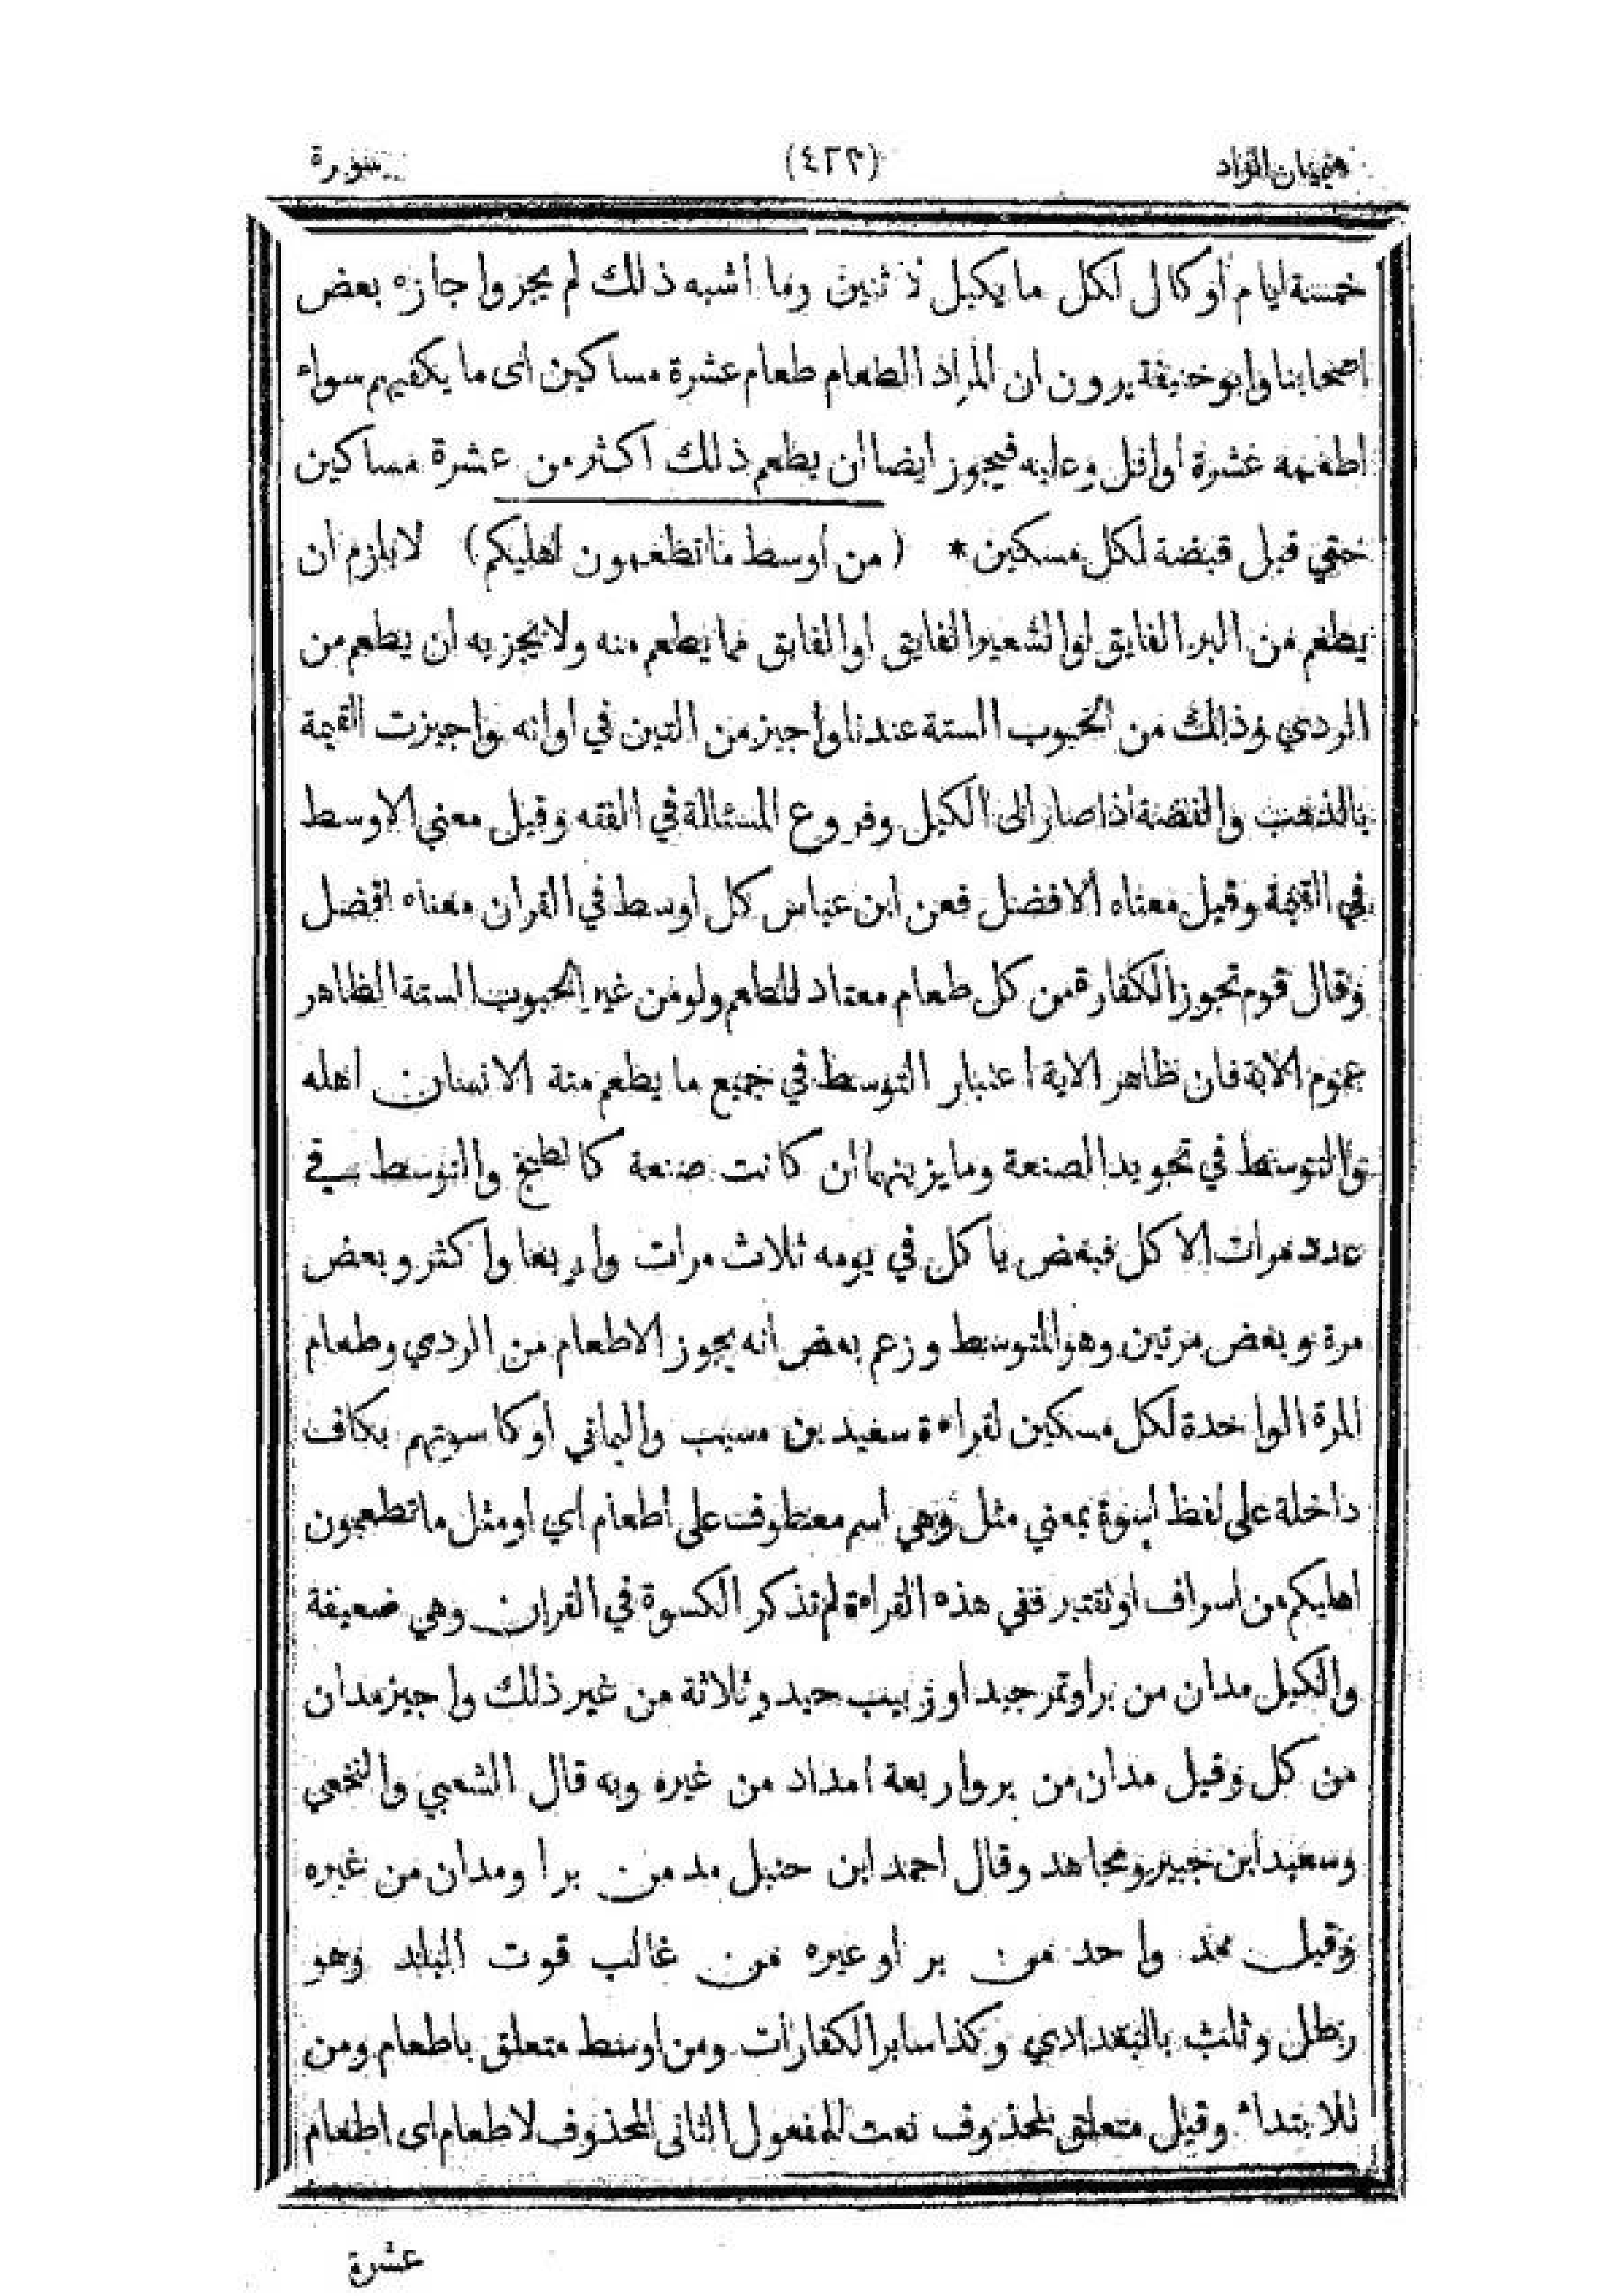 هميان الزاد (٤٢٣) سورة
خمسة ايام أو كال لكل ما يكيل لاثنين وما أشبه ذلك لم يجز واجازه بعض
اصحابنا وابو حنيفة يرون ان المراد الطعام طعام عشرة مساكين اى ما يكفيهم سواء
اطعمه عشرة او اقل وعليه فيجوز ايضا ان يطعم ذلك اكثر من عشرة مساكين
حتي قيل قبضة لكل مسكين * (من أوسط ما تطعمون اهليكم) لا يلزم ان
يطعم من البر الفايق او الشعير الفايق او الفايق مما يطعم منه ولا يجزيه أن يطعم من
الردي وذلك من الحبوب الستة عندنا واجيز من التين في اوانه واجيزت القيمة
بالذهب والفضة اذا صار الى الكيل وفروع المسئالة في الفقه وقيل معني الاوسط
في القيمة وقيل معناه الافضل فعن ابن عباس كل اوسط في القران معناه افضل
وقال قوم تجوز الكفارة من كل طعام معتاد للطعم ولو من غير الحبوب الستة الظاهر
عموم الاية فان ظاهر الاية اعتبار التوسط في جميع ما يطعم منه الانسان اهله
والتوسط في تجويد الصنعة وما يزينها ان كانت صنعة كالطبخ والتوسط في
عدد مرات الاكل فبعض ياكل في يومه ثلاث مرات واربعا واكثر وبعض
مرة وبعض مرتين وهو المتوسط وزعم بعض أنه يجوز الاطعام من الردي وطعام
المرة الواحدة لكل مسكين لقراءة سعيد بن مسيب واليماني او كاسوتهم بكاف
داخلة على لفظ اسوة بمعني مثل وهي اسم معطوف على اطعام اي او مثل ما تطعمون
اهليكم من اسراف او تقتير ففي هذه القراءة لم تذكر الكسوة في القران وهي ضعيفة
والكيل مدان من بر او تمر جيد او زبيب جيد وثلاثة من غير ذلك واجيز مدان
من كل وقيل مدان من بر واربعة امداد من غيره وبه قال الشعبي والنخعي
وسعيد ابن جبير ومجاهد وقال احمد ابن حنبل مد من برا ومدان من غيره
وقيل مد واحد من بر او غيره من غالب قوت البلد وهو
رطل وثلث بالبغدادي وكذا ساير الكفارات ومن اوسط متعلق باطعام ومن
للابتداء وقيل متعلق بمحذوف نعت للمفعول الثانى المحذوف لاطعام اى اطعام
عشرة